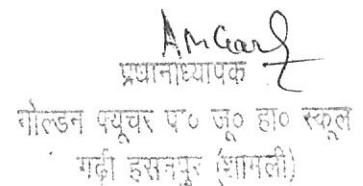 प्रधानाध्यापक
गोल्डन फ्यूचर प० जू० हा० स्कूल
गढ़ी हसनपुर (शामली)